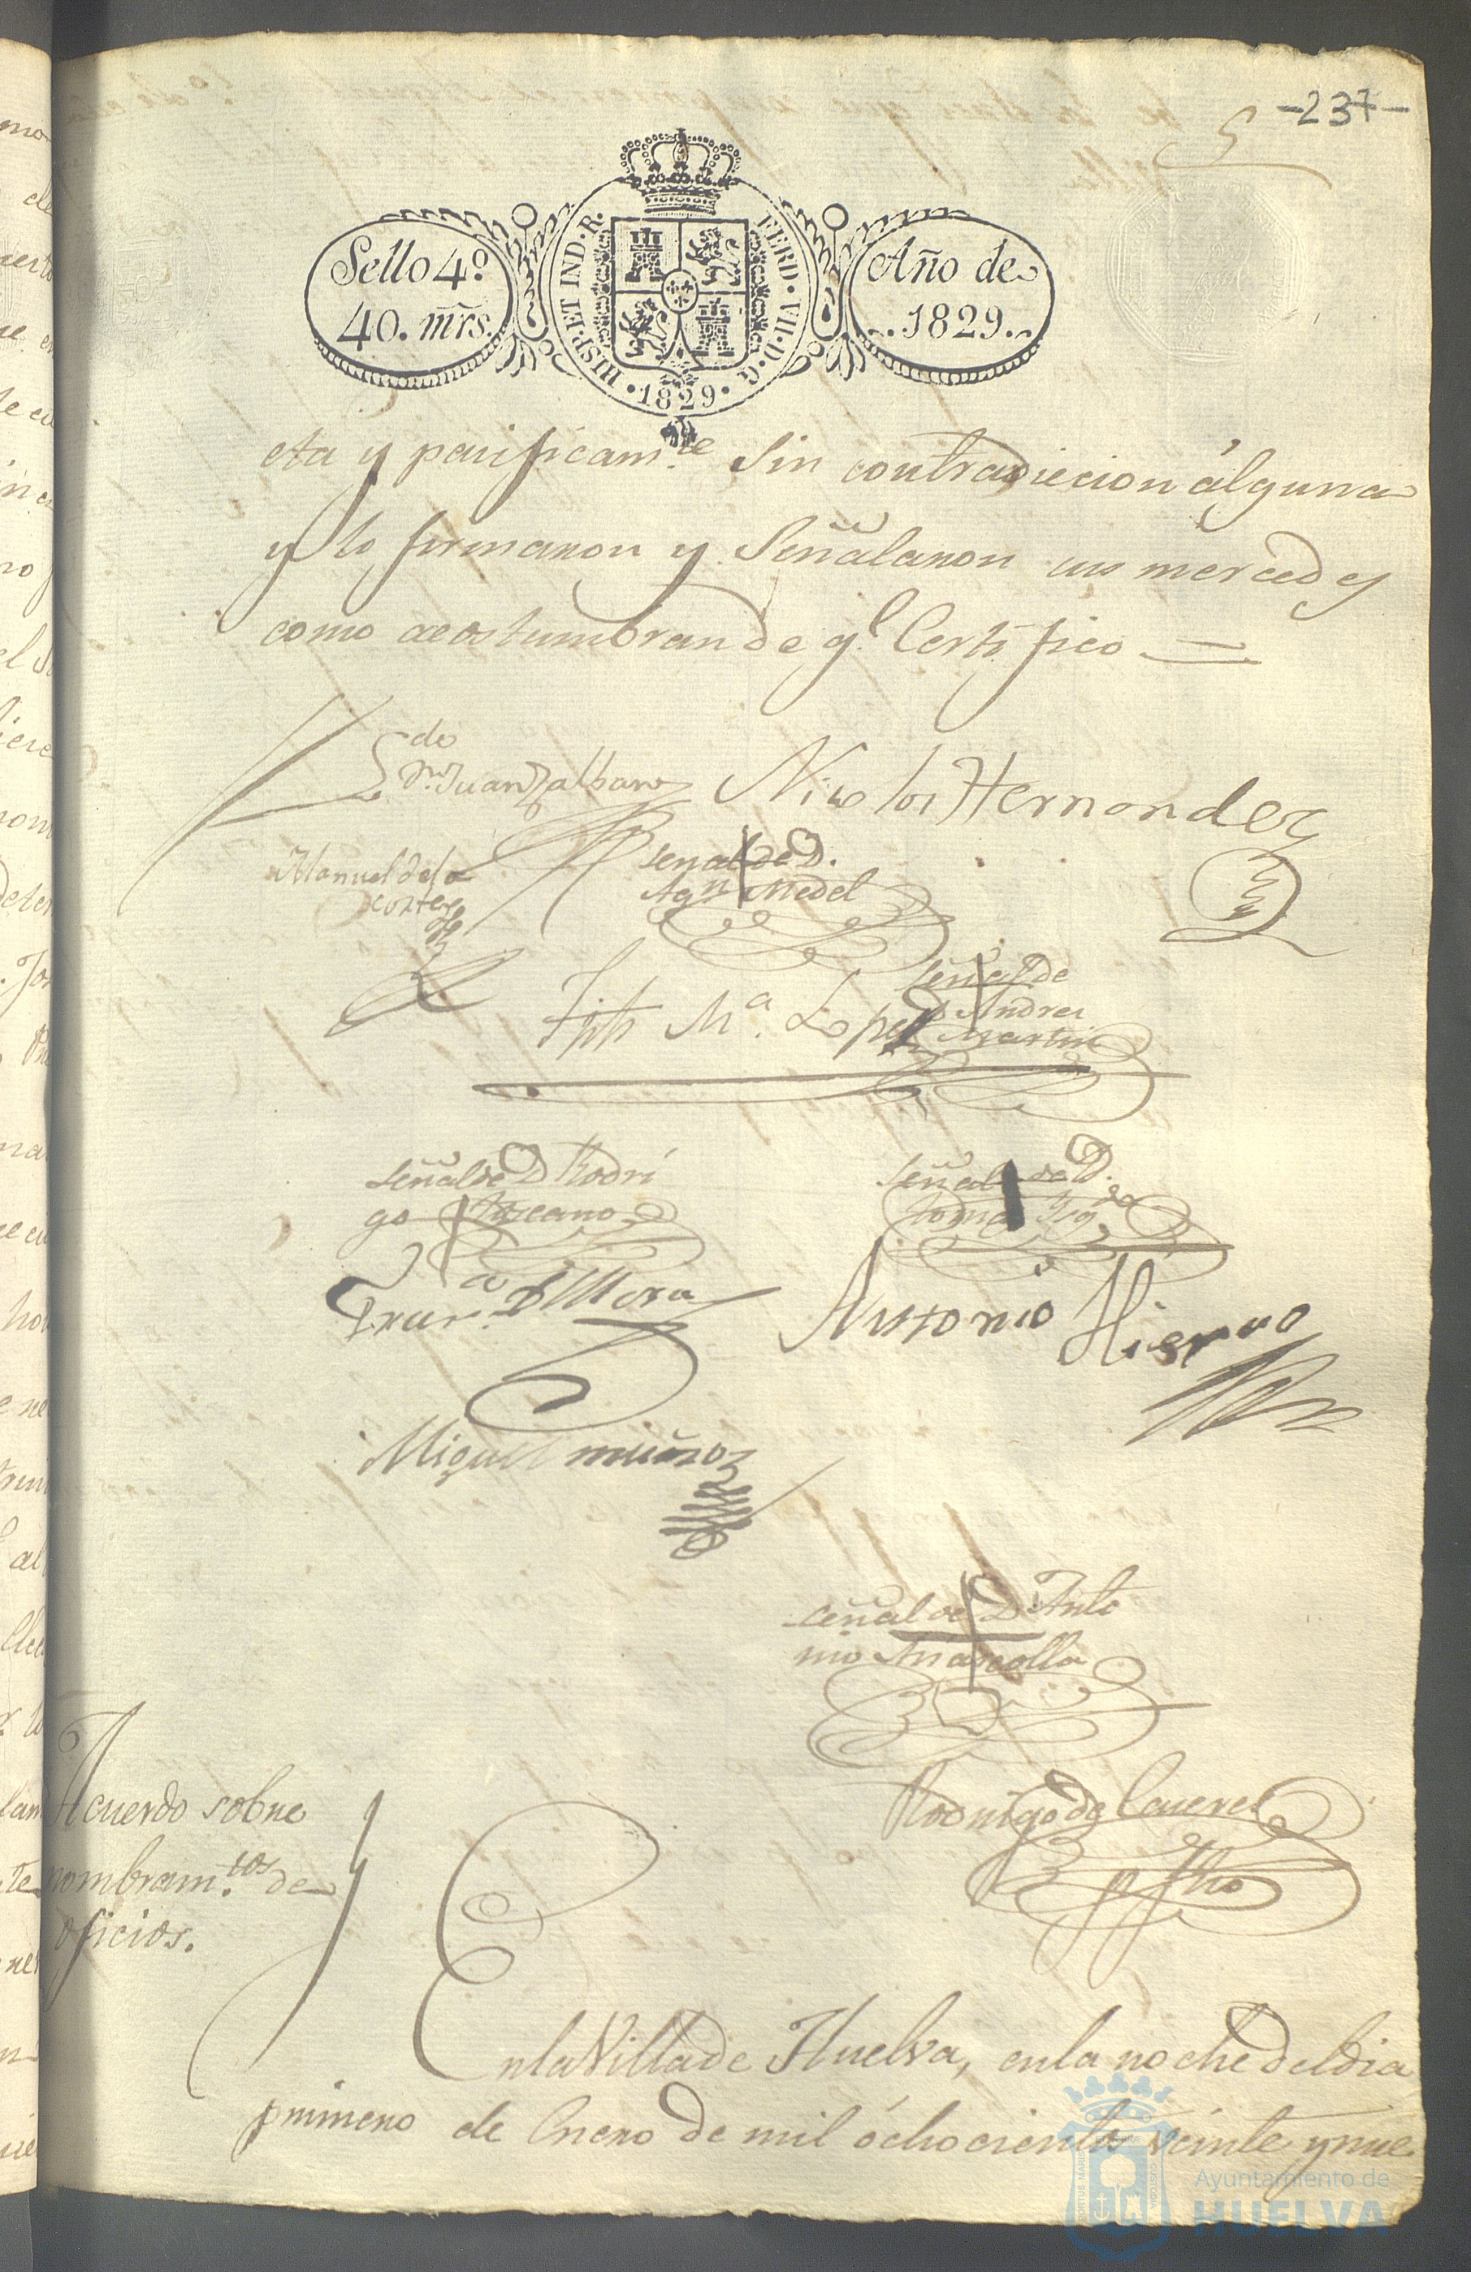 -237-
5
Sello 4º
40. mrs.
HISP. ET IND. R.
FERD. VII. D. G.
1829
Año de
1829.
eta y pacificam.te Sin contradiccion álguna
y lo firmaron y Señalaron sus mercedes
como acostumbran de q.e Certifico =
Ldo
Dn. Juan
Nicolas Hernandez
Manuel de la
Corte
señal de D.
Agn Medel
Señal de
D. Andres
Martin
Mª. Lopez
señal de D Rodri
go Toscano
señal de D.
Franca. D Mora
Antonio Hierro
Miguel muñoz
señal de D. Anto
nio
Rodrigo de
Acuerdo sobre
nombram.tos de
oficios.
En la Villa de Huelva, en la noche del dia
primero de Enero de mil óchocientos veinte y nue
Ayuntamiento de
HUELVA